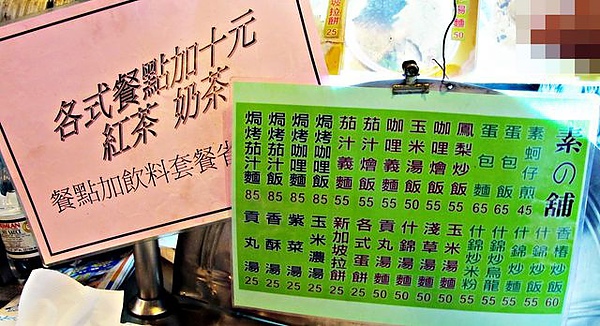 各式餐點加十元
紅茶 奶茶
餐點加飲料套餐省
坡拉餅 25
湯麵 50
素の舖
素蚵仔煎 45
蛋包飯 65
蛋包麵 65
鳳梨炒飯 55
咖哩燴飯 55
玉米湯飯 50
咖哩義麵 55
茄汁燴飯 55
茄汁義麵 55
焗烤咖哩飯 85
焗烤咖哩麵 85
焗烤茄汁飯 85
焗烤茄汁麵 85
香椿炒飯 60
什錦炒飯 55
什錦炒麵 55
什錦炒烏龍 55
什錦炒米粉 55
玉米湯麵 50
淺草湯麵 50
什錦湯麵 50
貢丸湯麵 50
各式蛋餅 25
新加坡拉餅 25
玉米濃湯 25
紫菜湯 25
香酥湯 25
貢丸湯 25